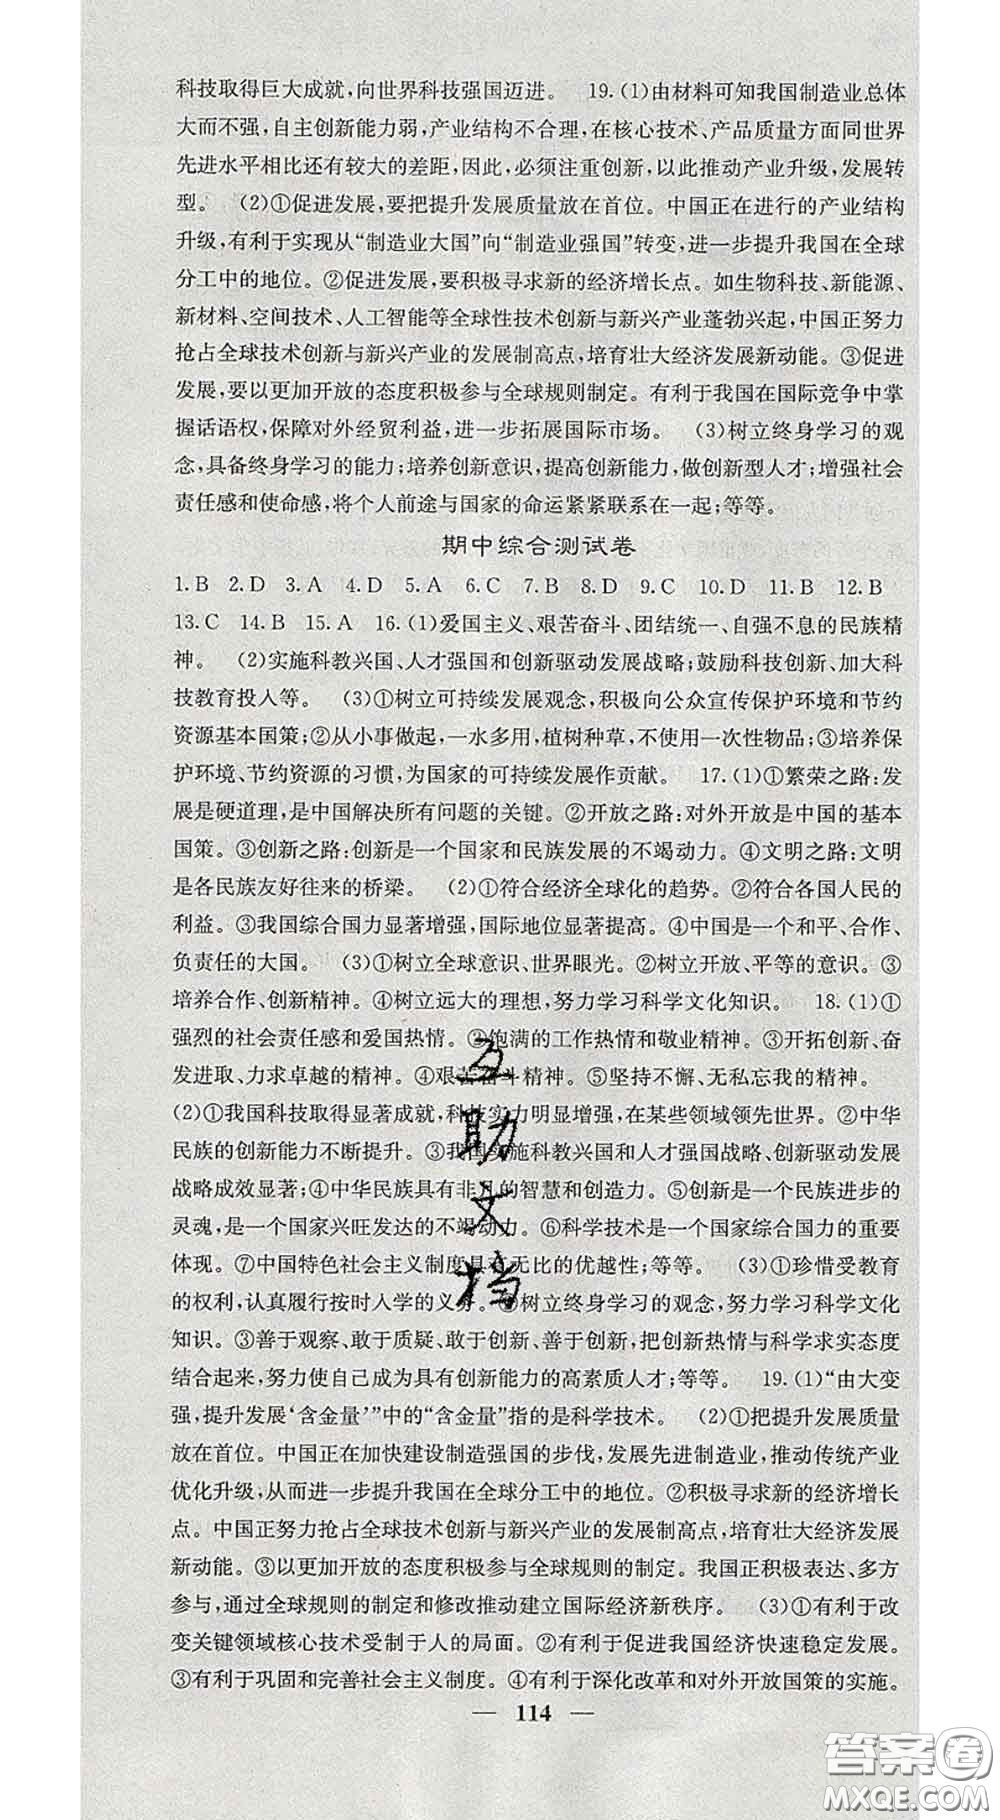 科技取得巨大成就,向世界科技强国迈进。 19.(1)由材料可知我国制造业总体
大而不强,自主创新能力弱,产业结构不合理,在核心技术、产品质量方面同世界
先进水平相比还有较大的差距,因此,必须注重创新,以此推动产业升级,发展转
型。 (2)①促进发展,要把提升发展质量放在首位。中国正在进行的产业结构
升级,有利于实现从“制造业大国”向“制造业强国”转变,进一步提升我国在全球
分工中的地位。②促进发展,要积极寻求新的经济增长点。如生物科技、新能源、
新材料、空间技术、人工智能等全球性技术创新与新兴产业蓬勃兴起,中国正努力
抢占全球技术创新与新兴产业的发展制高点,培育壮大经济发展新动能。③促进
发展,要以更加开放的态度积极参与全球规则制定。有利于我国在国际竞争中掌
握话语权,保障对外经贸利益,进一步拓展国际市场。 (3)树立终身学习的观
念,具备终身学习的能力;培养创新意识,提高创新能力,做创新型人才;增强社会
责任感和使命感,将个人前途与国家的命运紧紧联系在一起;等等。
期中综合测试卷
1.B 2.D 3.A 4.D 5.A 6.C 7.B 8.D 9.C 10.D 11.B 12.B
13.C 14.B 15.A 16.(1)爱国主义、艰苦奋斗、团结统一、自强不息的民族精
神。 (2)实施科教兴国、人才强国和创新驱动发展战略;鼓励科技创新、加大科
技教育投人等。 (3)①树立可持续发展观念,积极向公众宣传保护环境和节约
资源基本国策;②从小事做起,一水多用,植树种草,不使用一次性物品;③培养保
护环境、节约资源的习惯,为国家的可持续发展作贡献。 17.(1)①繁荣之路:发
展是硬道理,是中国解决所有问题的关键。②开放之路:对外开放是中国的基本
国策。③创新之路:创新是一个国家和民族发展的不竭动力。④文明之路:文明
是各民族友好往来的桥梁。 (2)①符合经济全球化的趋势。②符合各国人民的
利益。③我国综合国力显著增强,国际地位显著提高。④中国是一个和平、合作、
负责任的大国。 (3)①树立全球意识、世界眼光。②树立开放、平等的意识。③
培养合作、创新精神。④树立远大的理想,努力学习科学文化知识。 18.(1)①
强烈的社会责任感和爱国热情。②饱满的工作热情和敬业精神。③开拓创新、奋
发进取、力求卓越的精神。④艰苦奋斗精神。⑤坚持不懈、无私忘我的精神。
(2)①我国科技取得显著成就,科技实力明显增强,在某些领域领先世界。②中华
民族的创新能力不断提升。③我国实施科教兴国和人才强国战略、创新驱动发展
战略成效显著;④中华民族具有非凡的智慧和创造力。⑤创新是一个民族进步的
灵魂,是一个国家兴旺发达的不竭动力。⑥科学技术是一个国家综合国力的重要
体现。⑦中国特色社会主义制度具有无比的优越性;等等。 (3)①珍惜受教育
的权利,认真履行按时人学的义务。②树立终身学习的观念,努力学习科学文化
知识。③善于观察、敢于质疑、敢于创新、善于创新,把创新热情与科学求实态度
结合起来,努力使自己成为具有创新能力的高素质人才;等等。 19.(1)“由大变
强,提升发展‘含金量’”中的“含金量”指的是科学技术。 (2)①把提升发展质量
放在首位。中国正在加快建设制造强国的步伐,发展先进制造业,推动传统产业
优化升级,进一步提升我国在全球分工中的地位。②积极寻求新的经济增长
点。中国正努力抢占全球技术创新与新兴产业的发展制高点,培育壮大经济发展
新动能。③以更加开放的态度积极参与全球规则的制定。我国正积极表达、多方
参与,通过全球规则的制定和修改推动建立国际经济新秩序。 (3)①有利于改
变关键领域核心技术受制于人的局面。②有利于促进我国经济快速稳定发展。
③有利于巩固和完善社会主义制度。④有利于深化改革和对外开放国策的实施。
— 114 —
互助文档
答案圈
MXQE.COM